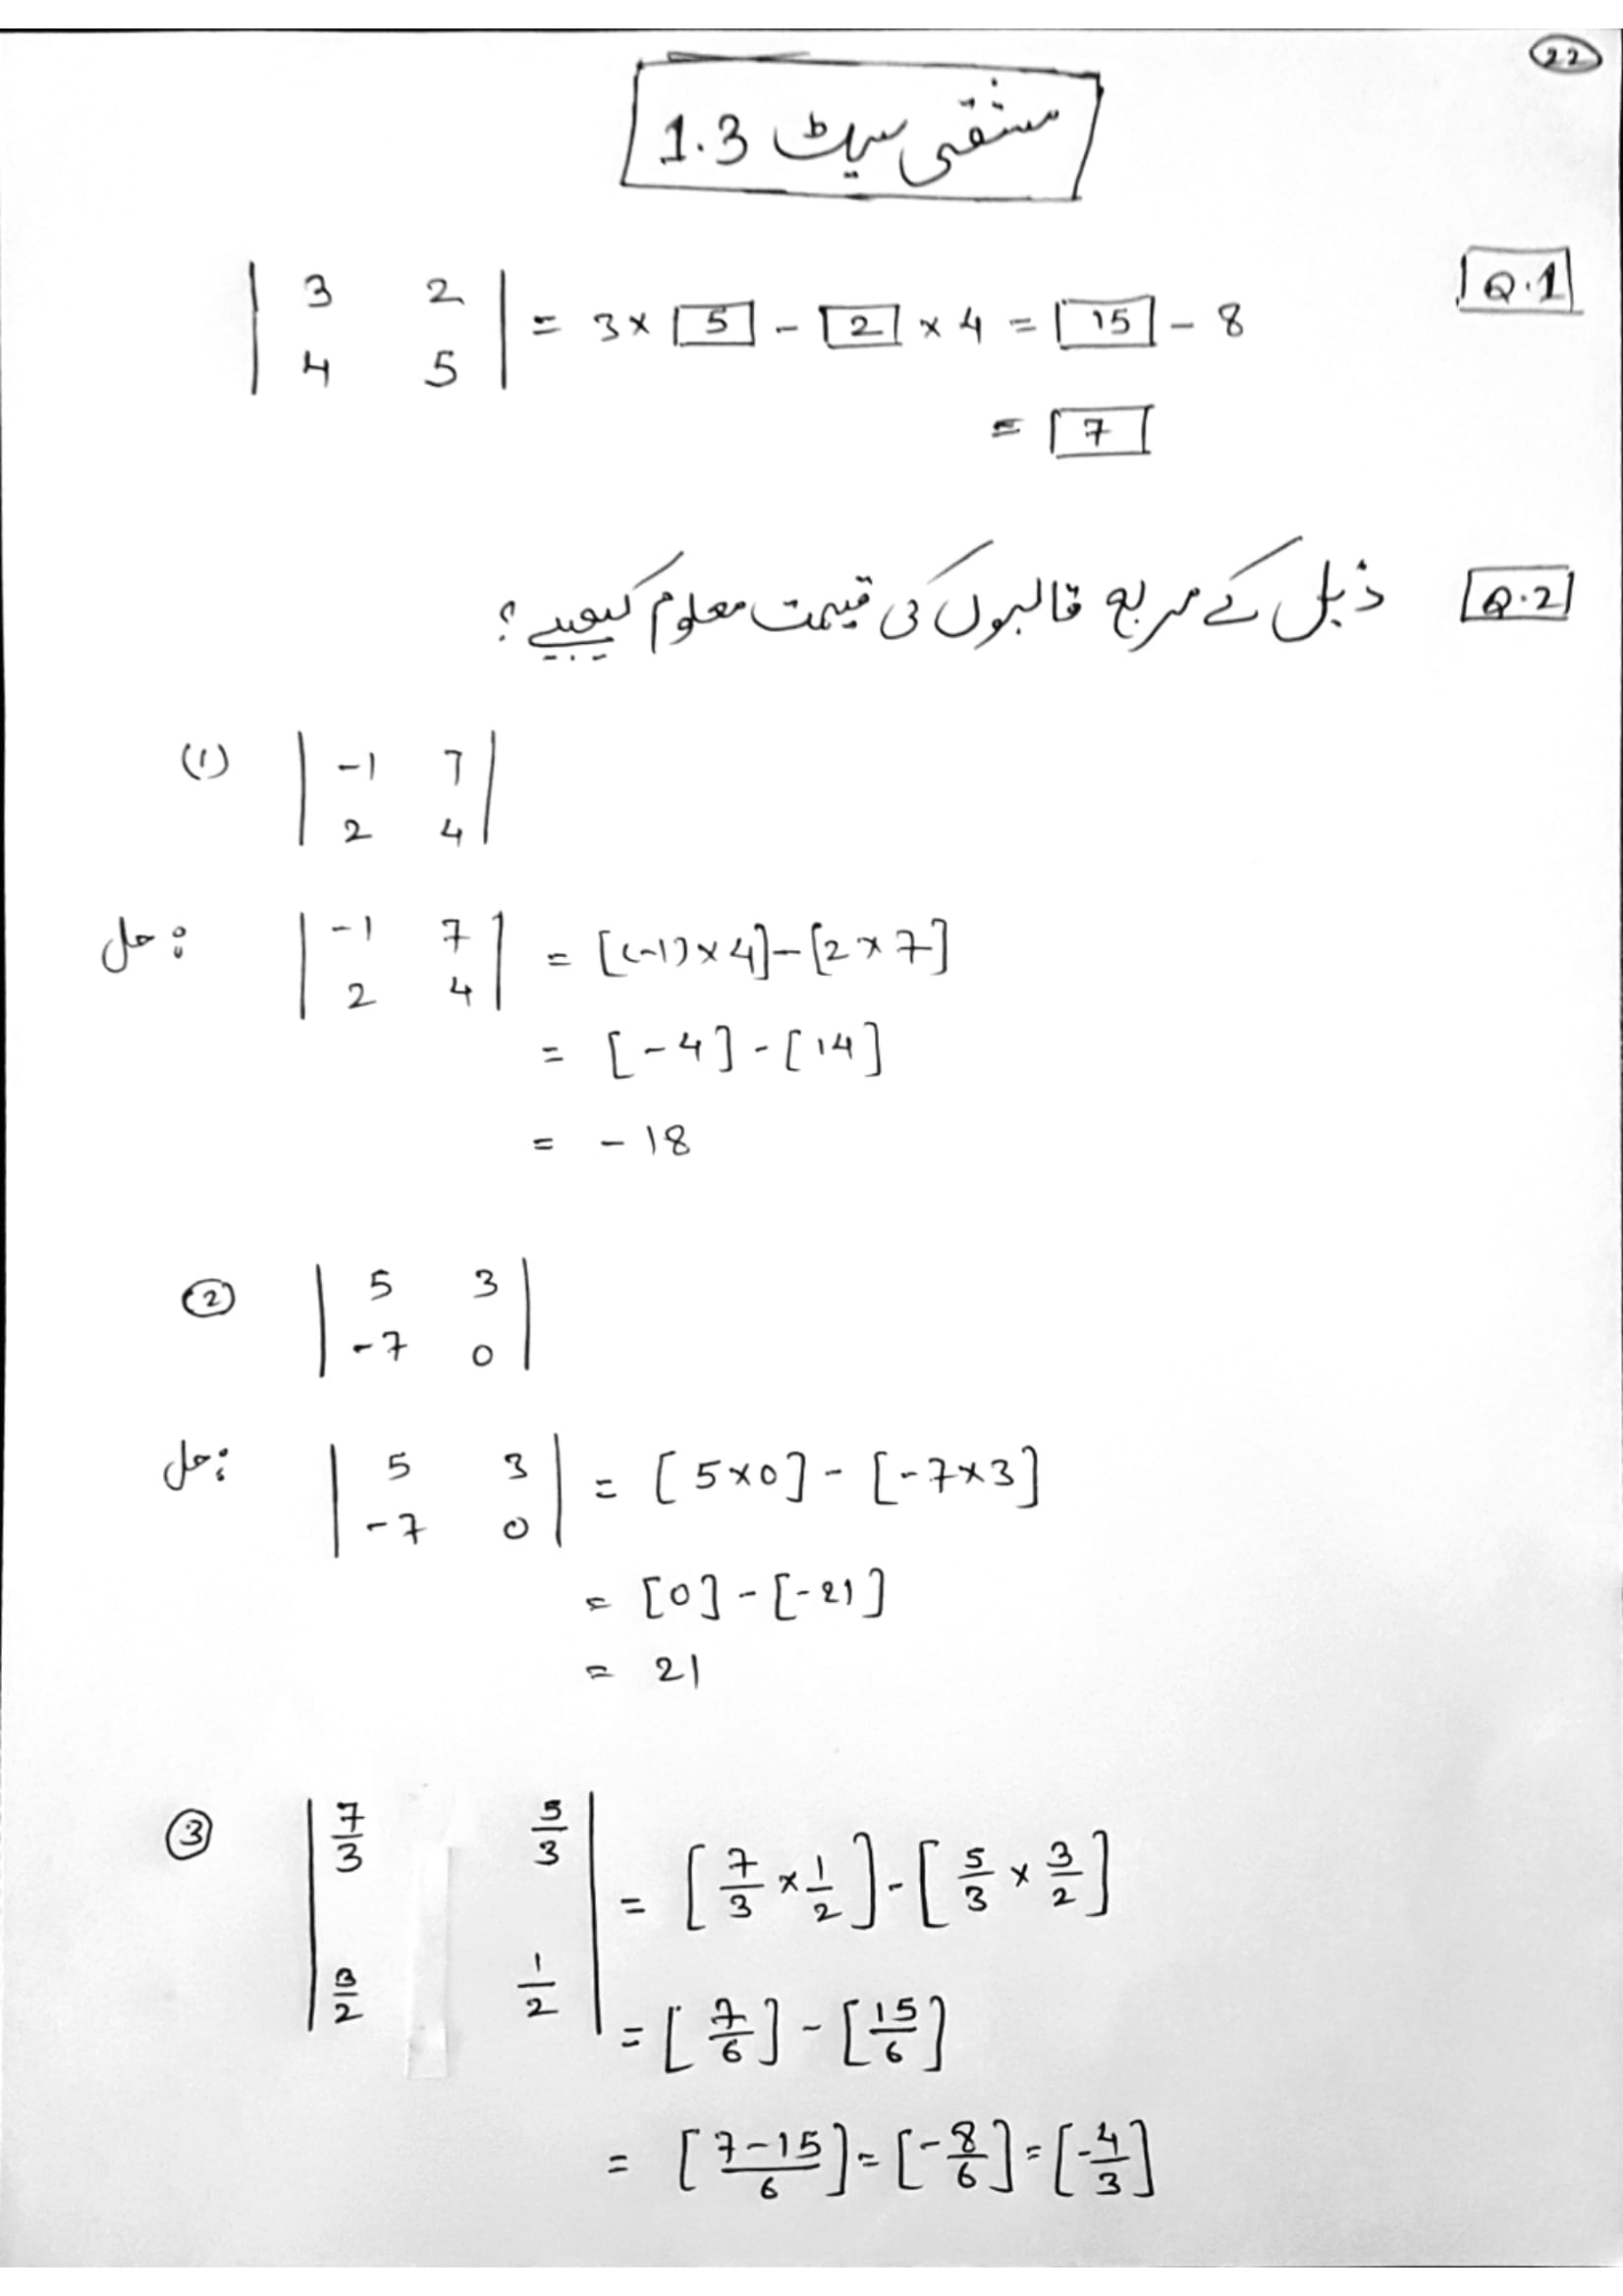 22
مشقی سیٹ 1.3
Q.1
| 3 2 |
| 4 5 | = 3 × [5] - [2] × 4 = [15] - 8
= [7]
Q.2 ذیل کے مربع قالبوں کی قیمت معلوم کیجیے؟
(1) | -1 7 |
| 2 4 |
حل: | -1 7 |
| 2 4 | = [(-1) × 4] - [2 × 7]
= [-4] - [14]
= -18
② | 5 3 |
| -7 0 |
حل: | 5 3 |
| -7 0 | = [5×0] - [-7×3]
= [0] - [-21]
= 21
③ | 7/3 5/3 |
| 3/2 1/2 | = [7/3 × 1/2] - [5/3 × 3/2]
= [7/6] - [15/6]
= [7-15/6] = [-8/6] = [-4/3]